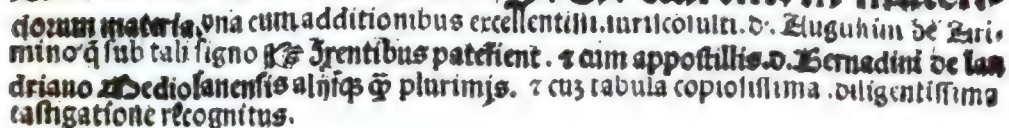 ctorum materia, vna cum additionibus excellentissi.iurisconsulti.d. Augustini de Ari-
mino q̄ sub tali signo ☞ Irentibus patefient. ⁊ cum appostillis.d.Bernadini de lan
driano Mediolanensis alijsq̄ꝫ q̄ꝫ plurimis. ⁊ cuꝫ tabula copiosissima .diligentissima
castigatione recognitus.